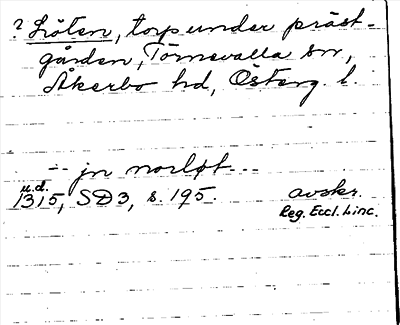 ? Löten, torp under präst-
gården, Törnevalla sn,
Åkerbo hd, Österg. l.
-- jn norløt---
u.d.
1315, SD3, s. 195. avskr.
Reg. Eccl. Linc.